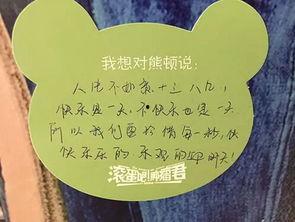 我想对熊顿说：
人生不如意十之八九，
快乐是一天，不快乐也是一天
所以我们要珍惜每一秒，快
快乐乐的乐观的迎明天！
滚蛋吧!肿瘤君